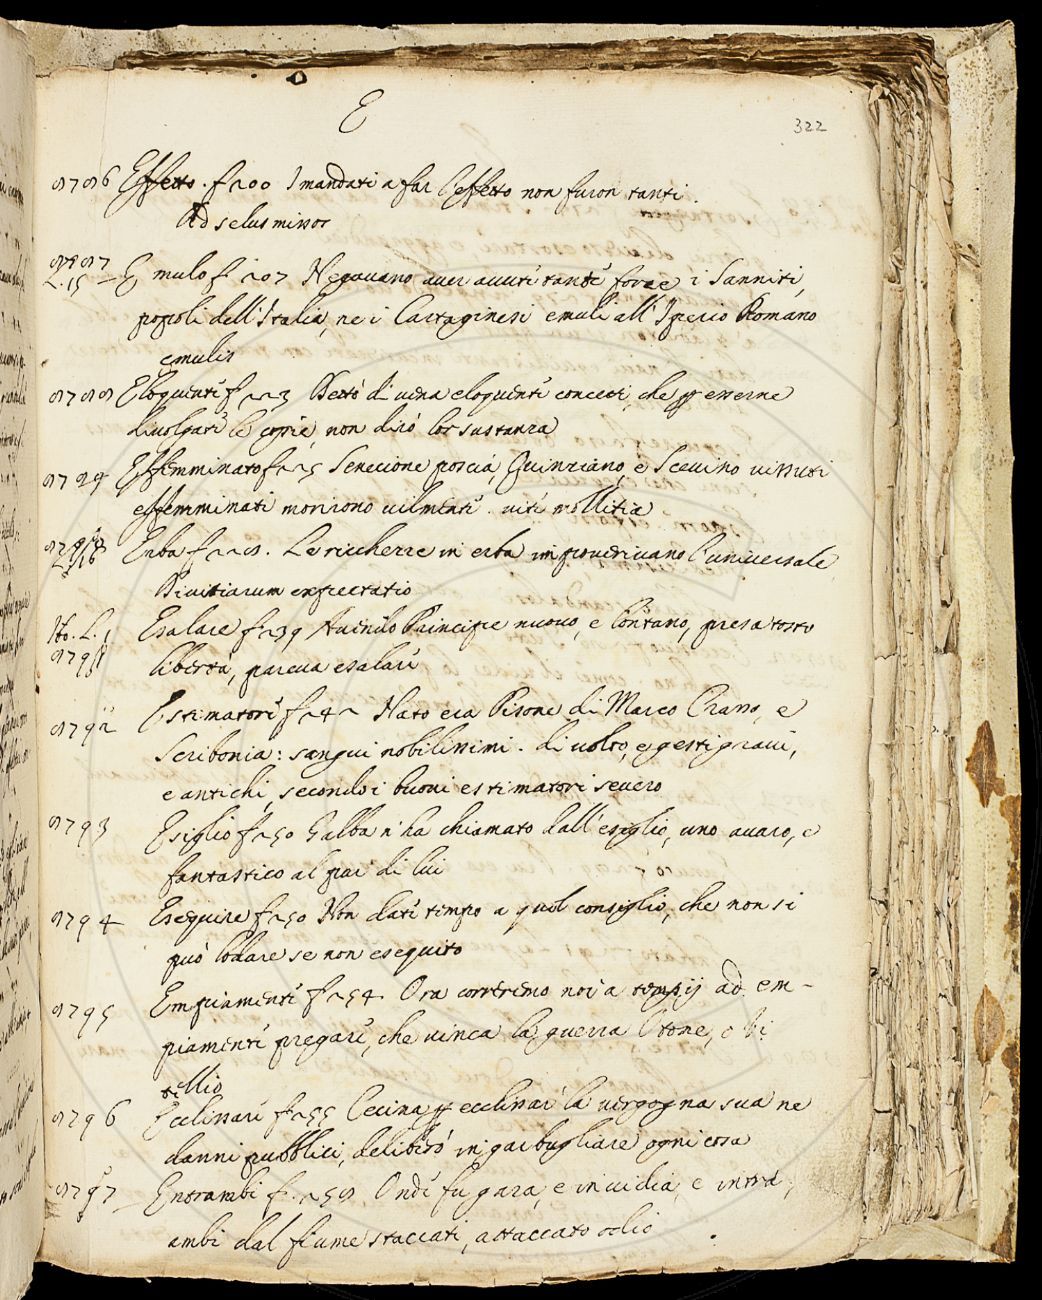 E
322
8786 Effetto. f 200 I mandati a far l'effetto non furon tanti.
Ad scelus missos
8787 Emulo f 207 Negavano aver avuti tante forze i Sanniti,
L. 15
popoli dell'Italia, ne i Cartaginesi emuli all'Iperio Romano
emulis
8788 Eloquenti f 223 Dettò di vena eloquenti concetti, che p esserne
divolgati le copie, non dirò lor sustanza
8789 Effemminato f 225 Senecione poscia, Quinziano, e Scevino vissuti
effemminati morirono vilmenti. viti mollitia
8790 Erba f 228. Le ricchezze in erba impoverivano l'universale
L. 16
Divitiarum expectatio
Sto. L. 1 Esalare f 239 Avendo Principe nuovo, e lontano, presa tosto
8791
libertà, pareva esalari
8792 Estimatori f 242 Nato era Pisone di Marco Crasso, e
Scribonia: sangui nobilissimi. di volto, e gesti gravi,
e antichi, secondo i buoni estimatori severo
8793 Esiglio f 250 Galba n'ha chiamato dall'esiglio, uno avaro, e
fantastico al par di lui
8794 Eseguire f 250 Non dati tempo a quel consiglio, che non si
può lodare se non eseguito
8795 Empiamenti f 254 Ora correremo noi a tempij ad em-
piamenti pregari, che vinca la guerra Otone, o Vi
tellio
8796 Ecclinari f 255 Cecina p ecclinar la vergogna sua ne
danni pubblici, deliberò ingarbugliare ogni cosa
8797 Entrambi f. 258 Ondi fu gara, e invidia, e intra,
ambi dal fiume staccati, attaccato odio.